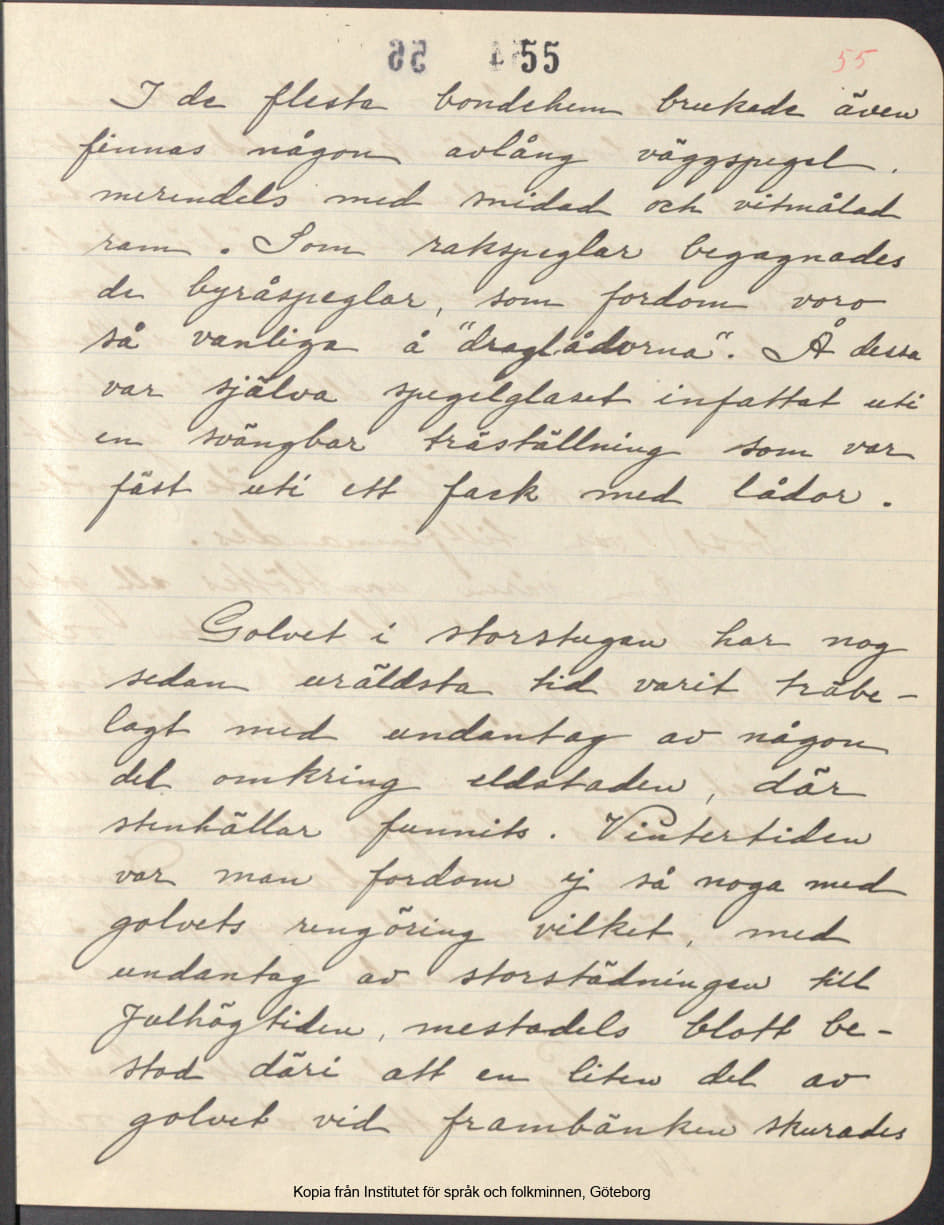 55
55
I de flesta bondehem brukade även
finnas någon avlång väggspegel,
merendels med snidad och vitmålad
ram. Som rakspeglar begagnades
de byråspeglar, som fordom voro
så vanliga å "draglådorna". Å dessa
var själva spegelglaset infattat uti
en svängbar träställning som var
fäst uti ett fack med lådor.
Golvet i storstugan har nog
sedan uräldsta tid varit träbe-
lagt med undantag av någon
del omkring eldstaden, där
stenhällar funnits. Vintertiden
var man fordom ej så noga med
golvets rengöring vilket, med
undantag av storstädningen till
Julhögtiden, mestadels blott be-
stod däri att en liten del av
golvet vid frambänken skurades
Kopia från Institutet för språk och folkminnen, Göteborg